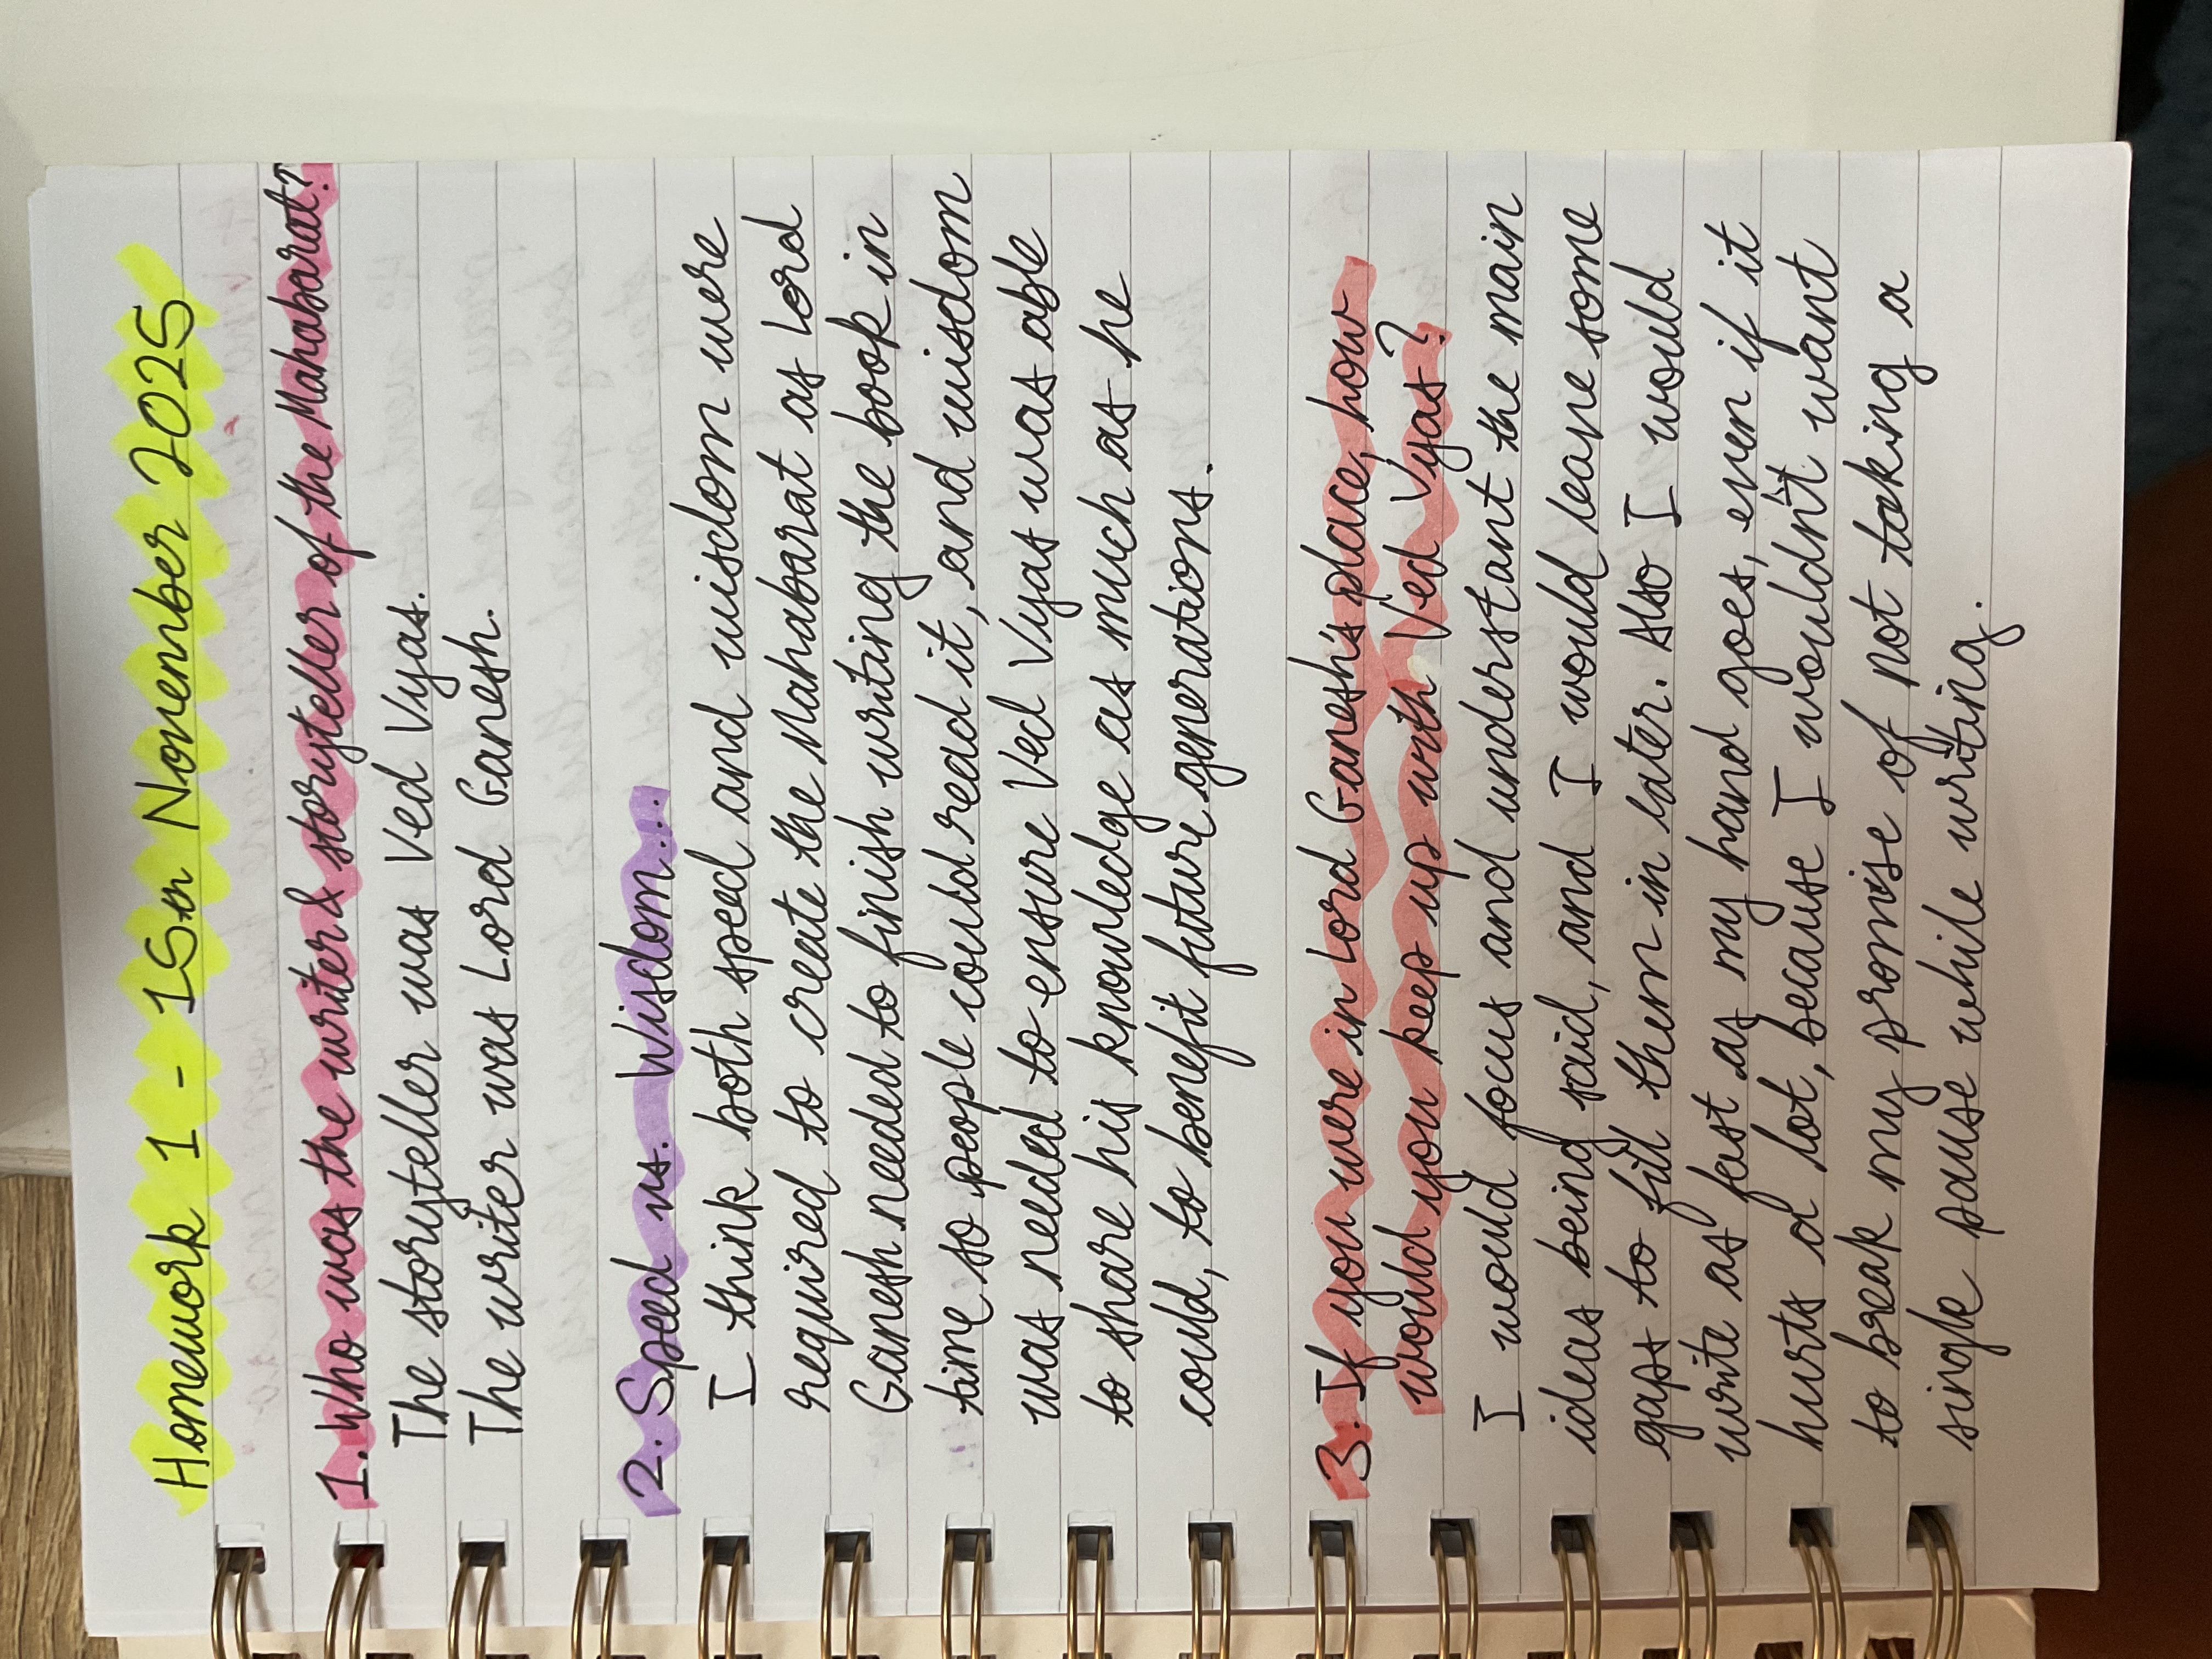 Homework 1 - 1st November 2025
1. Who was the writer & storyteller of the Mahabarat?
The storyteller was Ved Vyas.
The writer was Lord Ganesh.
2. Speed vs. Wisdom...
I think both speed and wisdom were
required to create the Mahabarat as Lord
Ganesh needed to finish writing the book in
time so people could read it, and wisdom
was needed to ensure Ved Vyas was able
to share his knowledge as much as he
could, to benefit future generations.
3. If you were in Lord Ganesh's place, how
would you keep up with Ved Vyas?
I would focus and understant the main
ideas being said, and I would leave some
gaps to fill them in later. Also I would
write as fast as my hand goes, even if it
hurts a lot, because I wouldn't want
to break my promise of not taking a
single pause while writing.